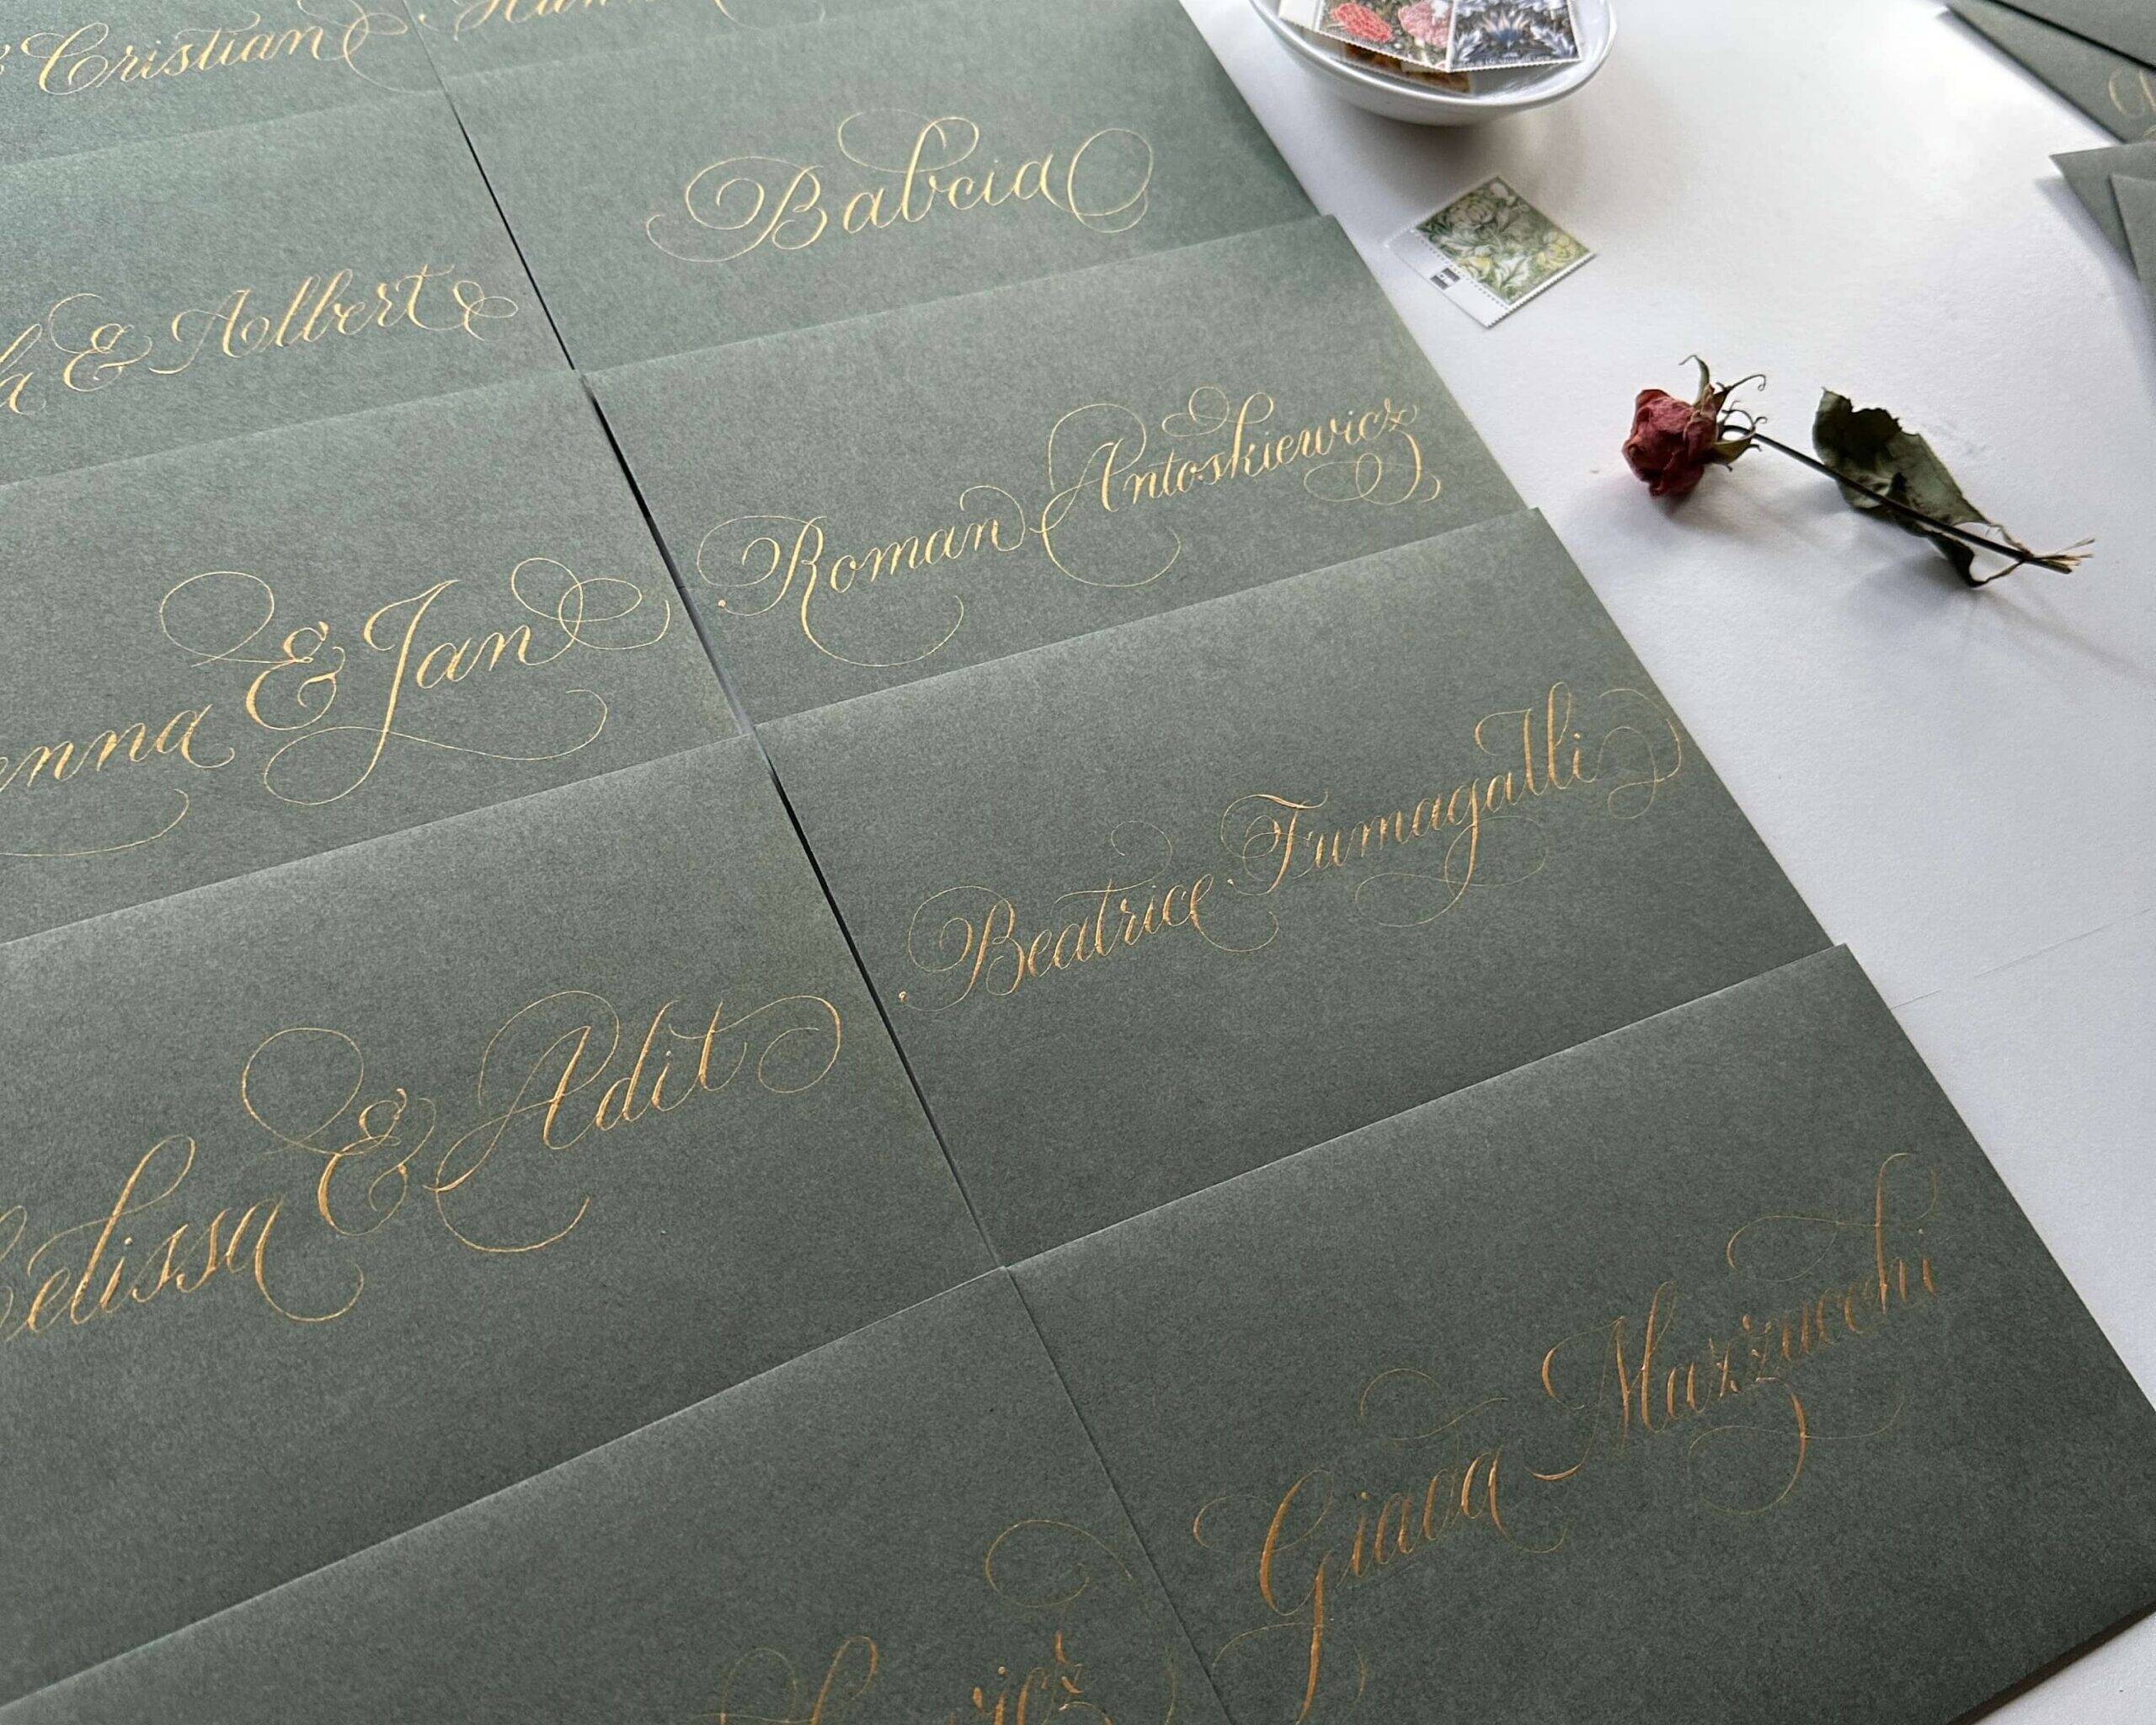 & Cristian
Babcia
& Albert
Roman Antoskiewicz
& Jan
Beatrice Fumagalli
Melissa & Adit
Giada Mazzucchi